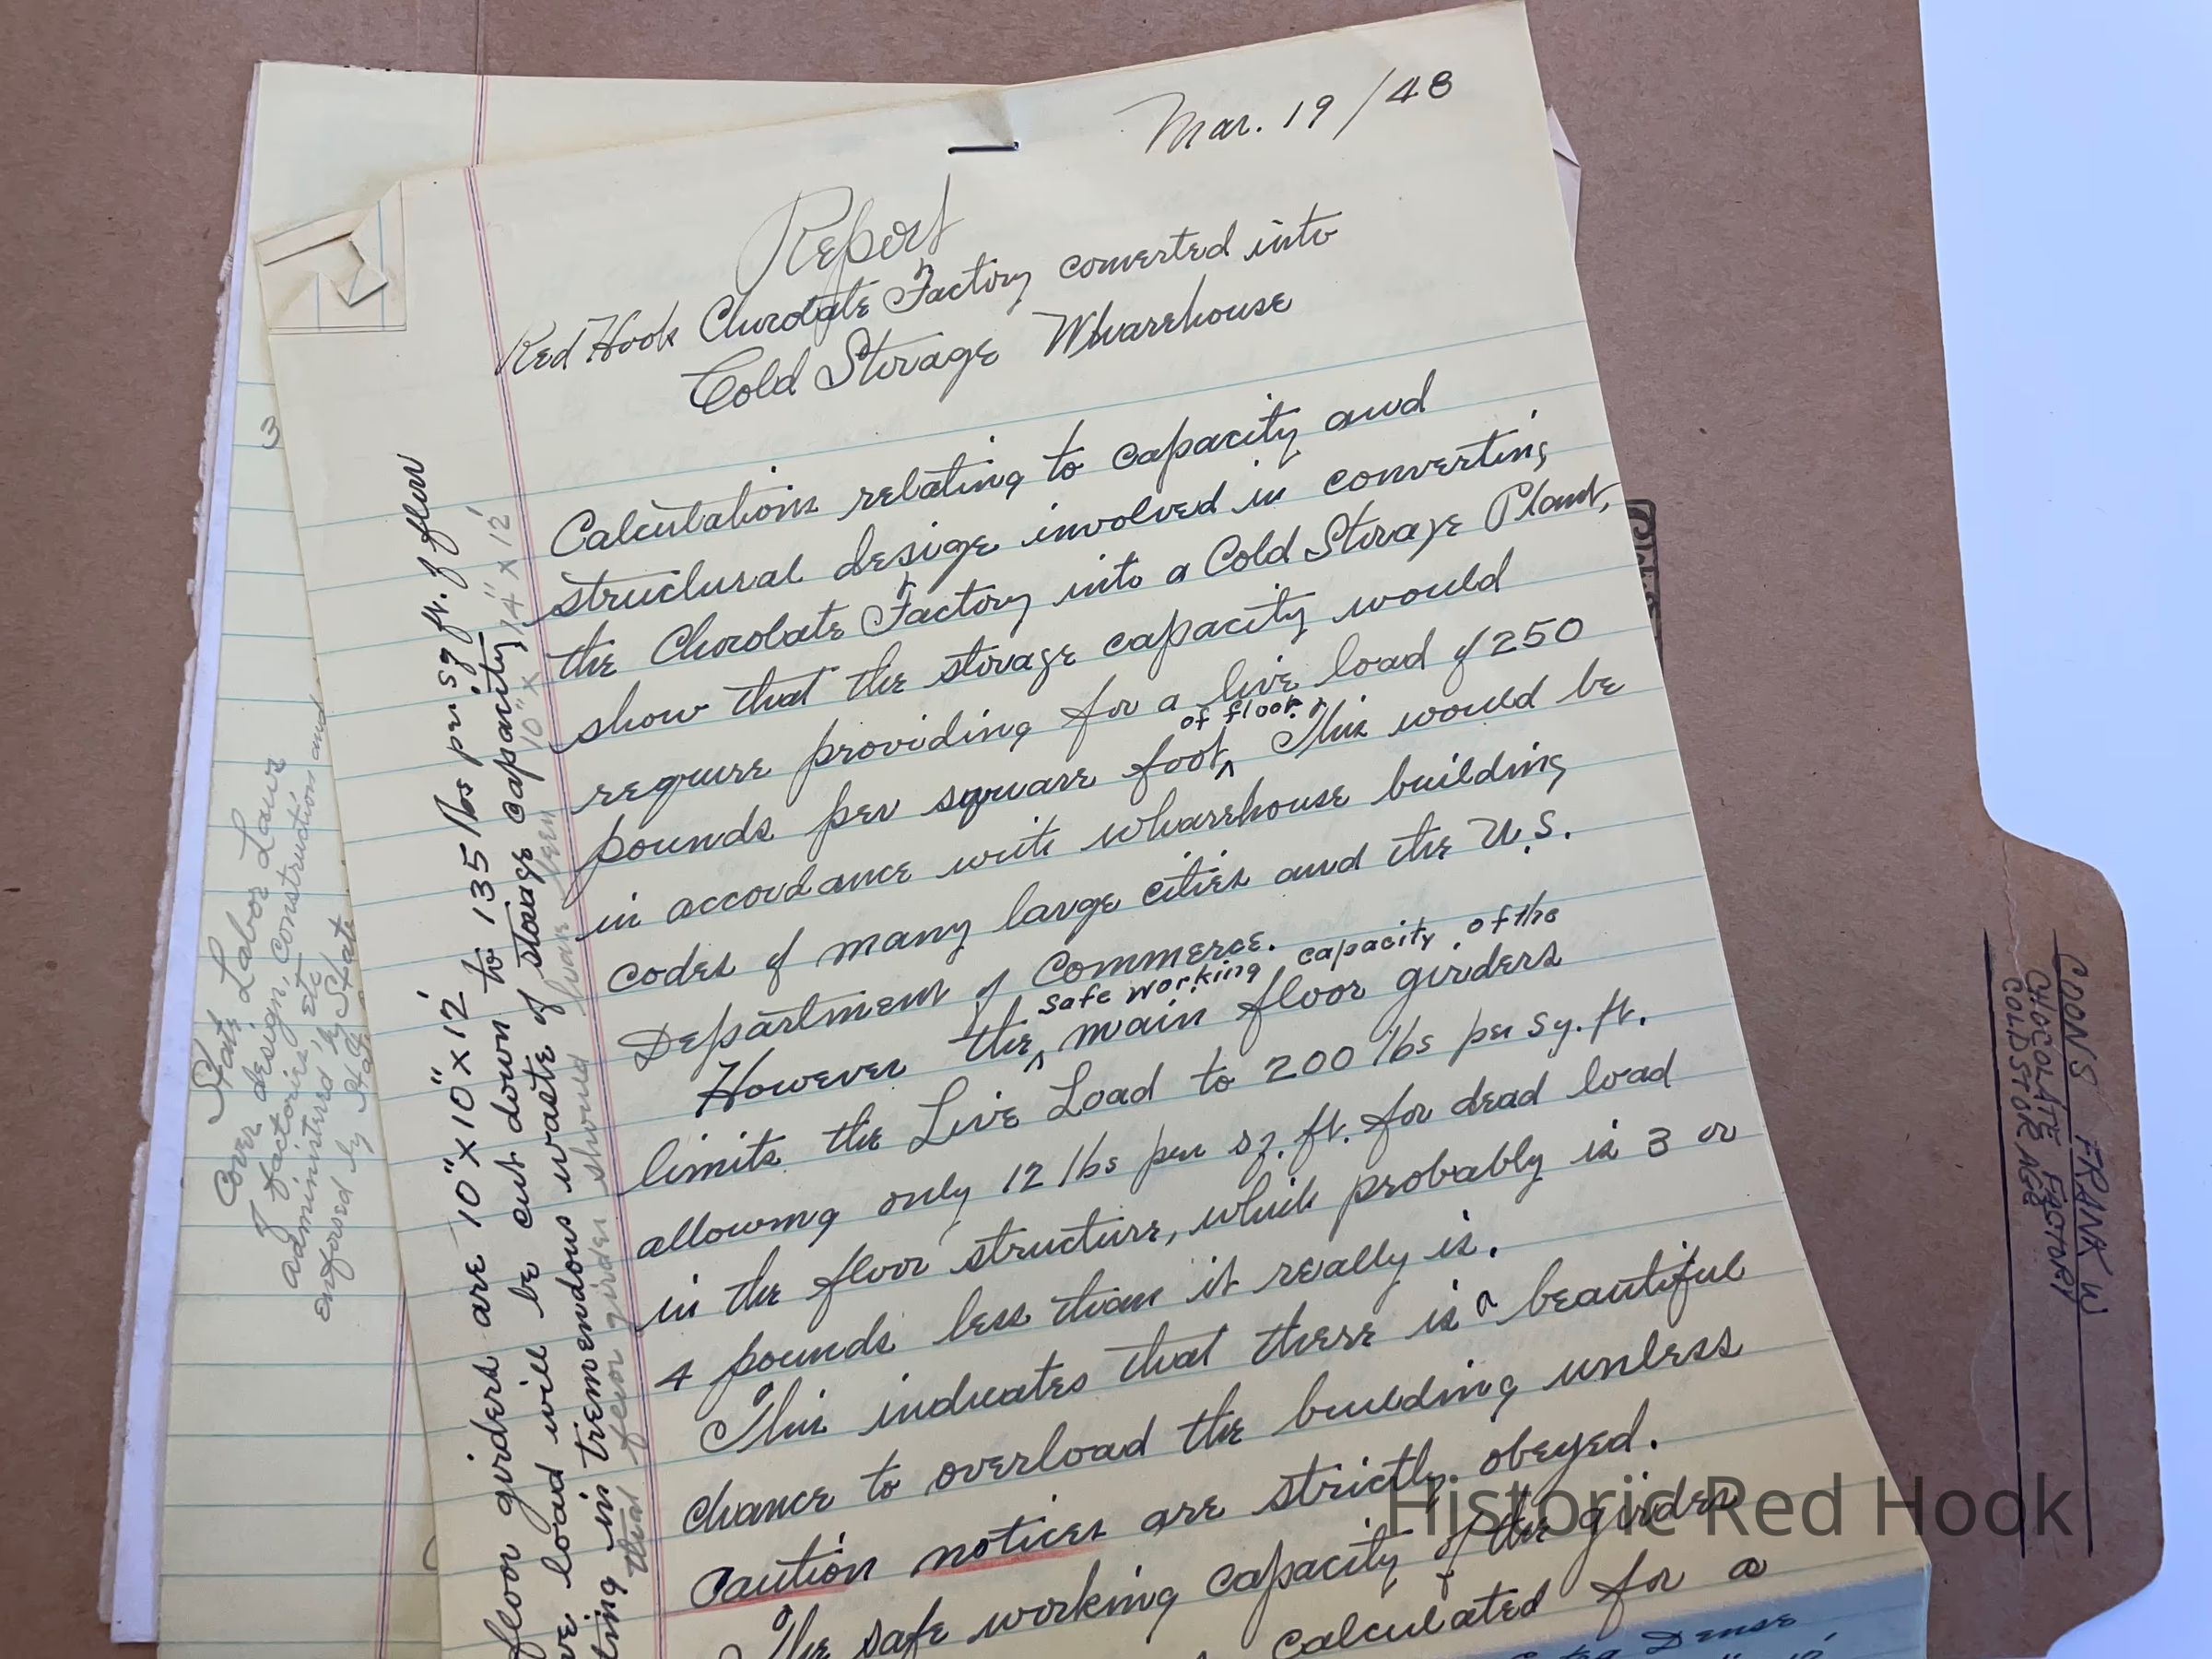 Mar. 19/48
Report
Red Hook Chocolate Factory converted into
Cold Storage Wharehouse
Calculations relating to capacity and
structural design involved in converting
the Chocolate Factory into a Cold Storage Plant,
show that the storage capacity would
require providing for a live load of 250
pounds per square foot of floor. This would be
in accordance with wharehouse building
codes of many large cities and the U.S.
Department of Commerce.
However the safe working capacity of the main floor girders
limits the Live Load to 200 lbs per sq. ft.
allowing only 12 lbs per sq. ft. for dead load
in the floor structure, which probably is 3 or
4 pounds less than it really is.
This indicates that there is a beautiful
chance to overload the building unless
caution notices are strictly obeyed.
The safe working capacity of the girder
calculated for a
floor girders are 10" x 10" x 12'
ve load will be cut down to 135 lbs per sq ft. of floor
ting in tremendous waste of storage capacity
that floor girder should have been 10" x 14" x 12'
3
State Labor Laws
Cover design, construction and
of factories, etc
administered by State
enforced by State
Dense
COONS FRANK W
CHOCOLATE FACTORY
COLD STORAGE
Historic Red Hook